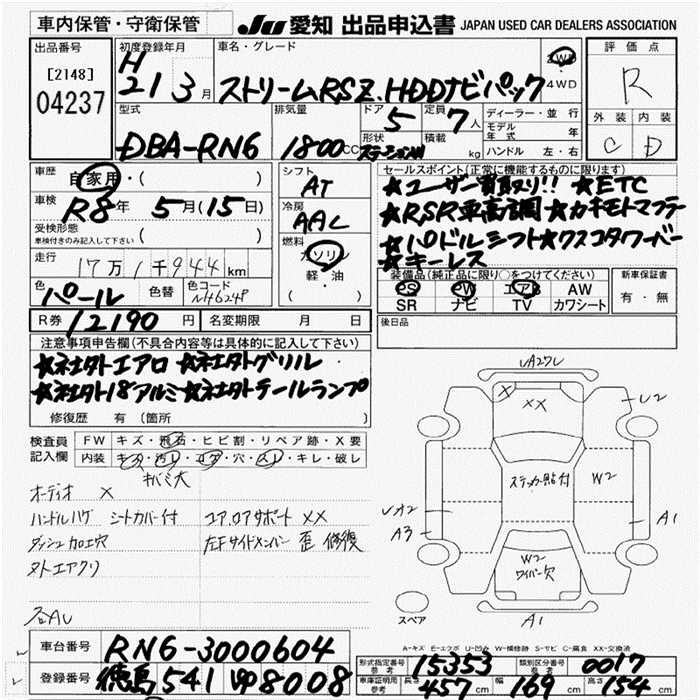 車内保管・守衛保管
JU 愛知 出品申込書 JAPAN USED CAR DEALERS ASSOCIATION
出品番号
[2148]
04237
初度登録年月
H
21 3月
車名・グレード
ストリームRSZ.HDDナビパック
2WD
4WD
評価点
R
外装 内装
C D
型式
DBA-RN6
排気量
1800cc
ドア
5
形状
ステーションW
定員
7人
積載
kg
ディーラー・並行
モデル年式 年
ハンドル 左・右
車歴
自家用・( )
車検
R8年 5月(15日)
受検形態
車検付きのみ記入して下さい ( )
走行
17万1千944km
色
パール
色替
色コード
NH624P
シフト
AT
冷房
AAC
燃料
ガソリン
軽・油
( )
セールスポイント(正常に機能するものに限ります)
★ユーザー買取り!! ★ETC
★RSR車高調 ★カキモトマフラー
★パドルシフト★クスコタワーバー
★キーレス
装備品(純正品に限り○をつけてください)
PS PW エアB AW
SR ナビ TV カワシート
新車保証書
有・無
R券 12190円
名変期限 月 日
後日品
注意事項申告欄(不具合内容等は具体的に記入して下さい)
★社外エアロ ★社外グリル
★社外18アルミ★社外テールランプ
修復歴 有 (箇所 )
検査員
記入欄
FW キズ・飛石・ヒビ割・リペア跡・X要
内装 キズ・汚レ・コゲ・穴・スレ・キレ・破レ
キバミ大
オーディオ ×
ハンドルハゲ シートカバー付 コア、ロアサポート XX
ダッシュ加工穴 左Fサイドメンバー 歪 修復
ヌトエアクリ
各AU
UA27U
X
XX
U2
ステッカー貼付
W2
UA2
A3
A1
W2
ワイパー穴
スペア
A1
A-キズ E-エクボ U-凹み W-補修跡 S-サビ C-腐食 XX-交換済
車台番号 RN6-3000604
登録番号 徳島 541 ゆ 8008
形式指定番号
参考
15353
類別区分番号
参考
0017
車庫証明用
参考
長さ 457cm 幅 169cm 高さ 154cm